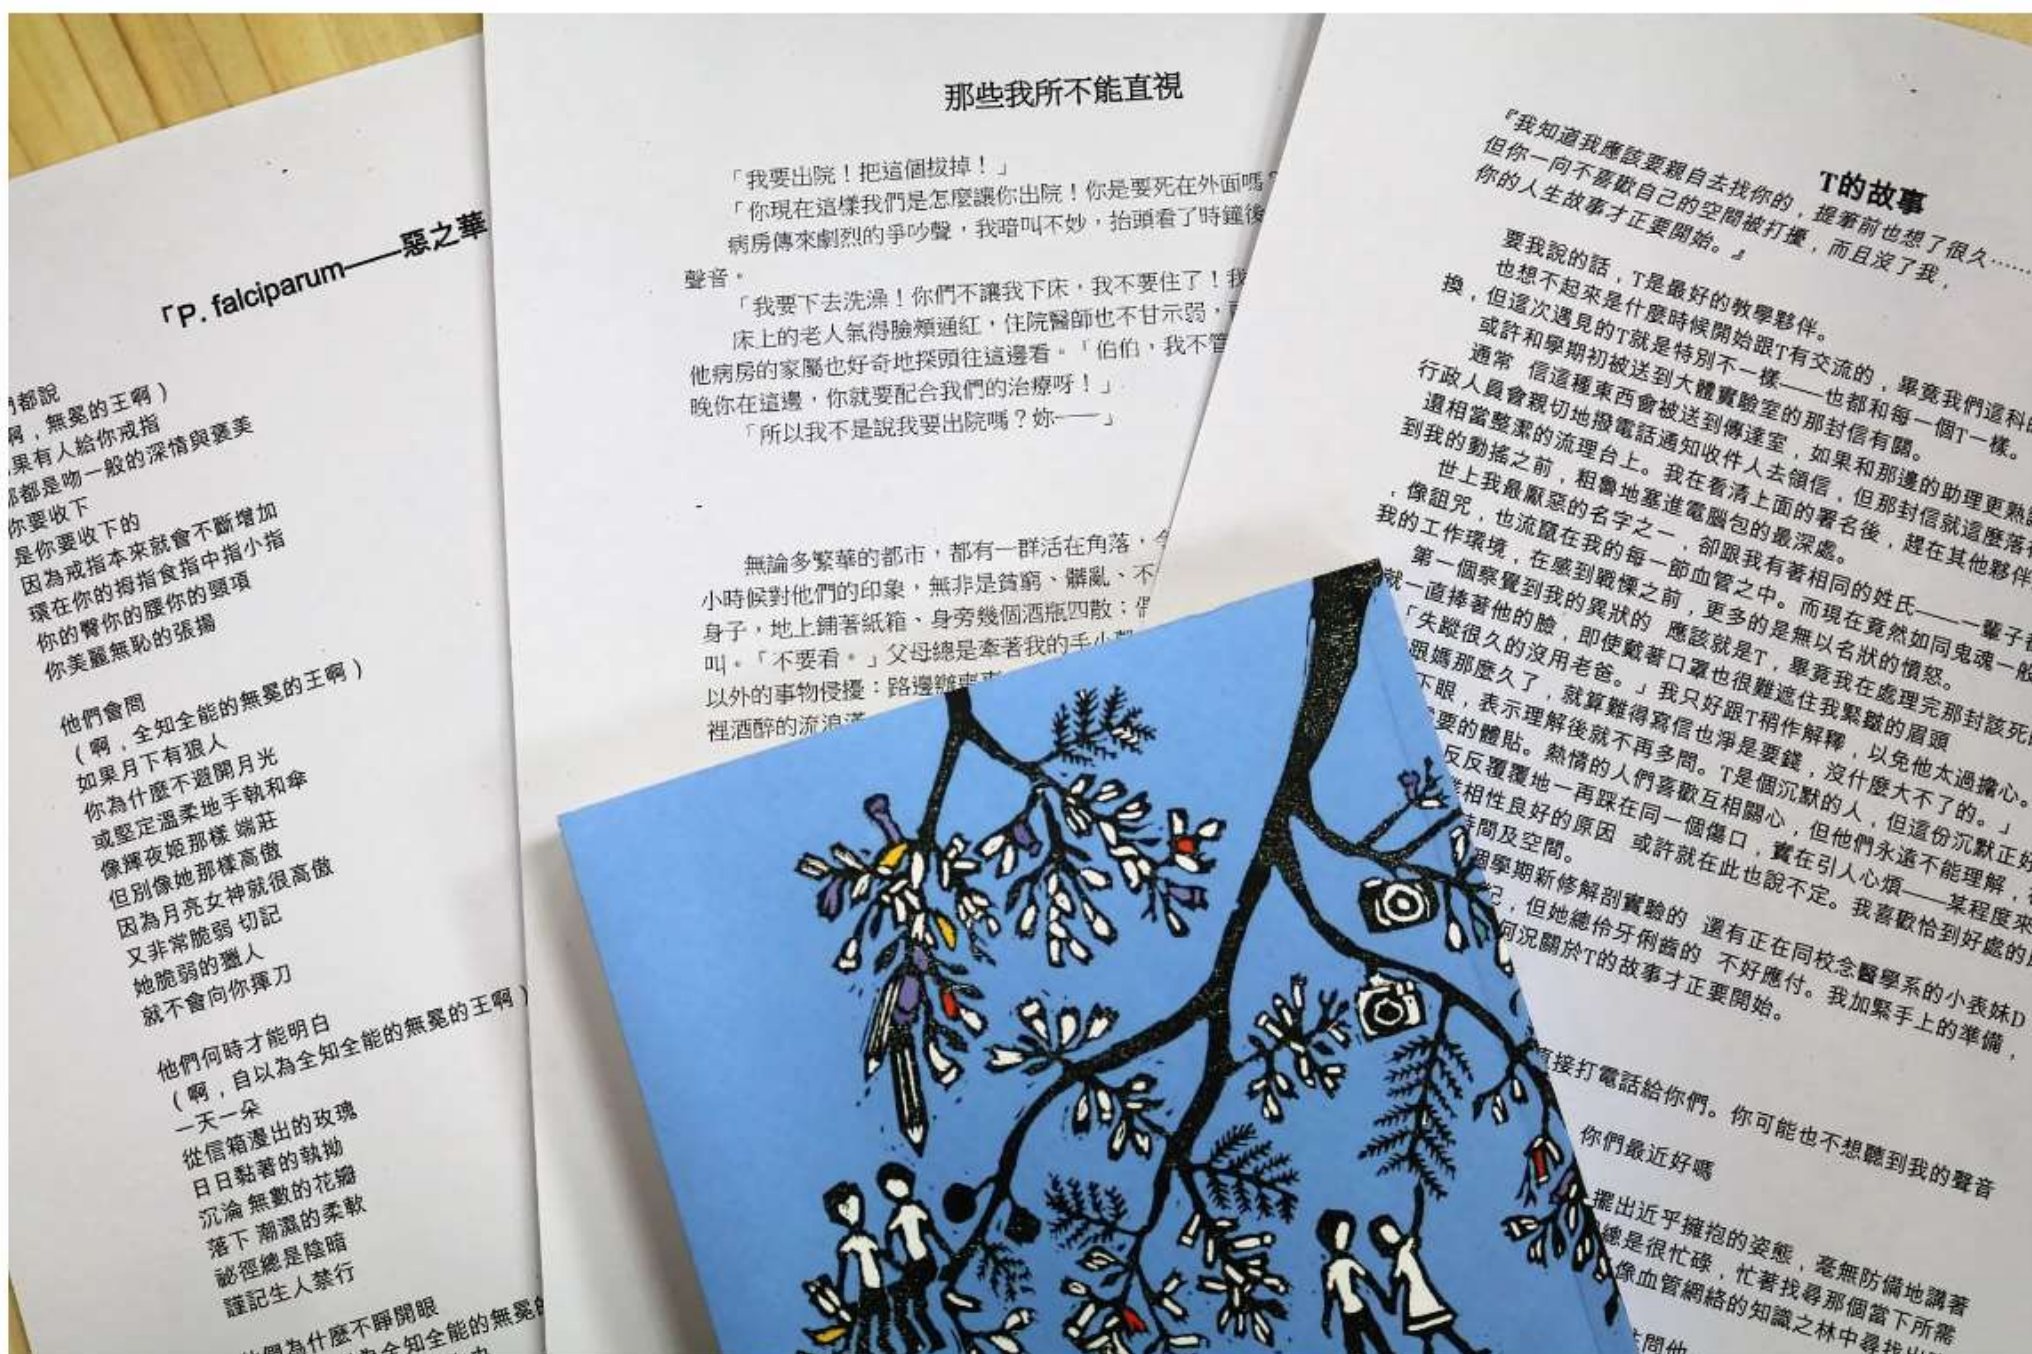 「P. falciparum——惡之華
都說
啊，無冕的王啊）
果有人給你戒指
那都是吻一般的深情與褒美
你要收下
是你要收下的
因為戒指本來就會不斷增加
環在你的拇指食指中指小指
你的臀你的腰你的頸項
你美麗無恥的張揚
他們會問
（啊，全知全能的無冕的王啊）
如果月下有狼人
你為什麼不避開月光
或堅定溫柔地手執和傘
像輝夜姬那樣 端莊
但別像她那樣高傲
因為月亮女神就很高傲
又非常脆弱 切記
她脆弱的獵人
就不會向你揮刀
他們何時才能明白
（啊，自以為全知全能的無冕的王啊）
一天一朵
從信箱漫出的玫瑰
日日黏著的執拗
沉淪 無數的花瓣
落下 潮濕的柔軟
祕徑總是陰暗
謹記生人禁行
們為什麼不睜開眼
為全知全能的無冕的
那些我所不能直視
「我要出院！把這個拔掉！」
「你現在這樣我們是怎麼讓你出院！你是要死在外面嗎？
病房傳來劇烈的爭吵聲，我暗叫不妙，抬頭看了時鐘後
聲音。
「我要下去洗澡！你們不讓我下床，我不要住了！我
床上的老人氣得臉頰通紅，住院醫師也不甘示弱，
他病房的家屬也好奇地探頭往這邊看。「伯伯，我不管
晚你在這邊，你就要配合我們的治療呀！」
「所以我不是說我要出院嗎？妳——」
無論多繁華的都市，都有一群活在角落，
小時候對他們的印象，無非是貧窮、髒亂、不
身子，地上鋪著紙箱、身旁幾個酒瓶四散；
叫。「不要看。」父母總是牽著我的手小
以外的事物侵擾：路邊辦
裡酒醉的流浪漢
T的故事
『我知道我應該要親自去找你的，提筆前也想了很久……
但你一向不喜歡自己的空間被打擾，而且沒了我，
你的人生故事才正要開始。』
要我說的話，T是最好的教學夥伴。
也想不起來是什麼時候開始跟T有交流的，畢竟我們這科的
換，但這次遇見的T就是特別不一樣——也都和每一個T一樣。
或許和學期初被送到大體實驗室的那封信有關。
通常 信這種東西會被送到傳達室，如果和那邊的助理更熟
行政人員會親切地撥電話通知收件人去領信，但那封信就這麼落
還相當整潔的流理台上。我在看清上面的署名後，趕在其他夥伴
到我的動搖之前，粗魯地塞進電腦包的最深處。
世上我最厭惡的名字之一，卻跟我有著相同的姓氏——一輩子
，像詛咒，也流竄在我的每一節血管之中。而現在竟然如同鬼魂一般
我的工作環境，在感到戰慄之前，更多的是無以名狀的憤怒。
第一個察覺到我的異狀的 應該就是T，畢竟我在處理完那封該死
就一直捧著他的臉，即使戴著口罩也很難遮住我緊皺的眉頭
「失蹤很久的沒用老爸。」我只好跟T稍作解釋，以免他太過擔心。
跟媽那麼久了，就算難得寫信也淨是要錢，沒什麼大不了的。」
下眼，表示理解後就不再多問。T是個沉默的人，但這份沉默正好
要的體貼。熱情的人們喜歡互相關心，但他們永遠不能理解，
反反覆覆地一再踩在同一個傷口，實在引人心煩——某程度來
相性良好的原因 或許就在此也說不定。我喜歡恰到好處的
時間及空間。
個學期新修解剖實驗的 還有正在同校念醫學系的小表妹D
記，但她總伶牙俐齒的 不好應付。我加緊手上的準備，
何況關於T的故事才正要開始。
直接打電話給你們。你可能也不想聽到我的聲音
你們最近好嗎
擺出近乎擁抱的姿態，毫無防備地講著
總是很忙碌，忙著找尋那個當下所需
像血管網絡的知識之林中尋找出
問他